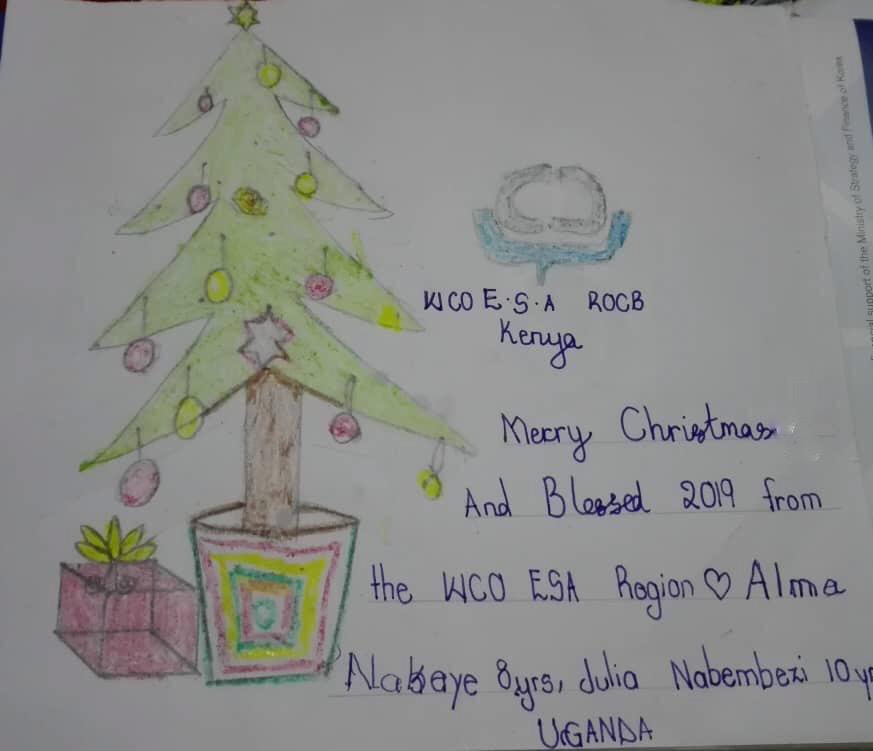 WCO E.S.A ROCB
Kenya
Merry Christmas
And Blessed 2019 from
the WCO ESA Region ♡ Alma
8yrs, Julia Nabembezi 10 yr
UGANDA
support of the Ministry of Strategy and Finance of Korea